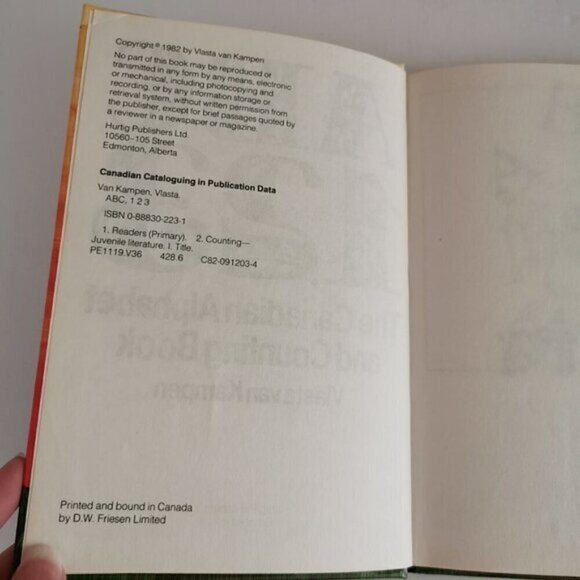 Copyright © 1982 by Vlasta van Kampen
No part of this book may be reproduced or
transmitted in any form by any means, electronic
or mechanical, including photocopying and
recording, or by any information storage or
retrieval system, without written permission from
the publisher, except for brief passages quoted by
a reviewer in a newspaper or magazine.
Hurtig Publishers Ltd.
10560–105 Street
Edmonton, Alberta
Canadian Cataloguing in Publication Data
Van Kampen, Vlasta.
ABC, 1 2 3
ISBN 0-88830-223-1
1. Readers (Primary). 2. Counting—
Juvenile literature. I. Title.
PE1119.V36 428.6 C82-091203-4
The Canadian Alphabet
and Counting Book
Vlasta van Kampen
Printed and bound in Canada
by D.W. Friesen Limited